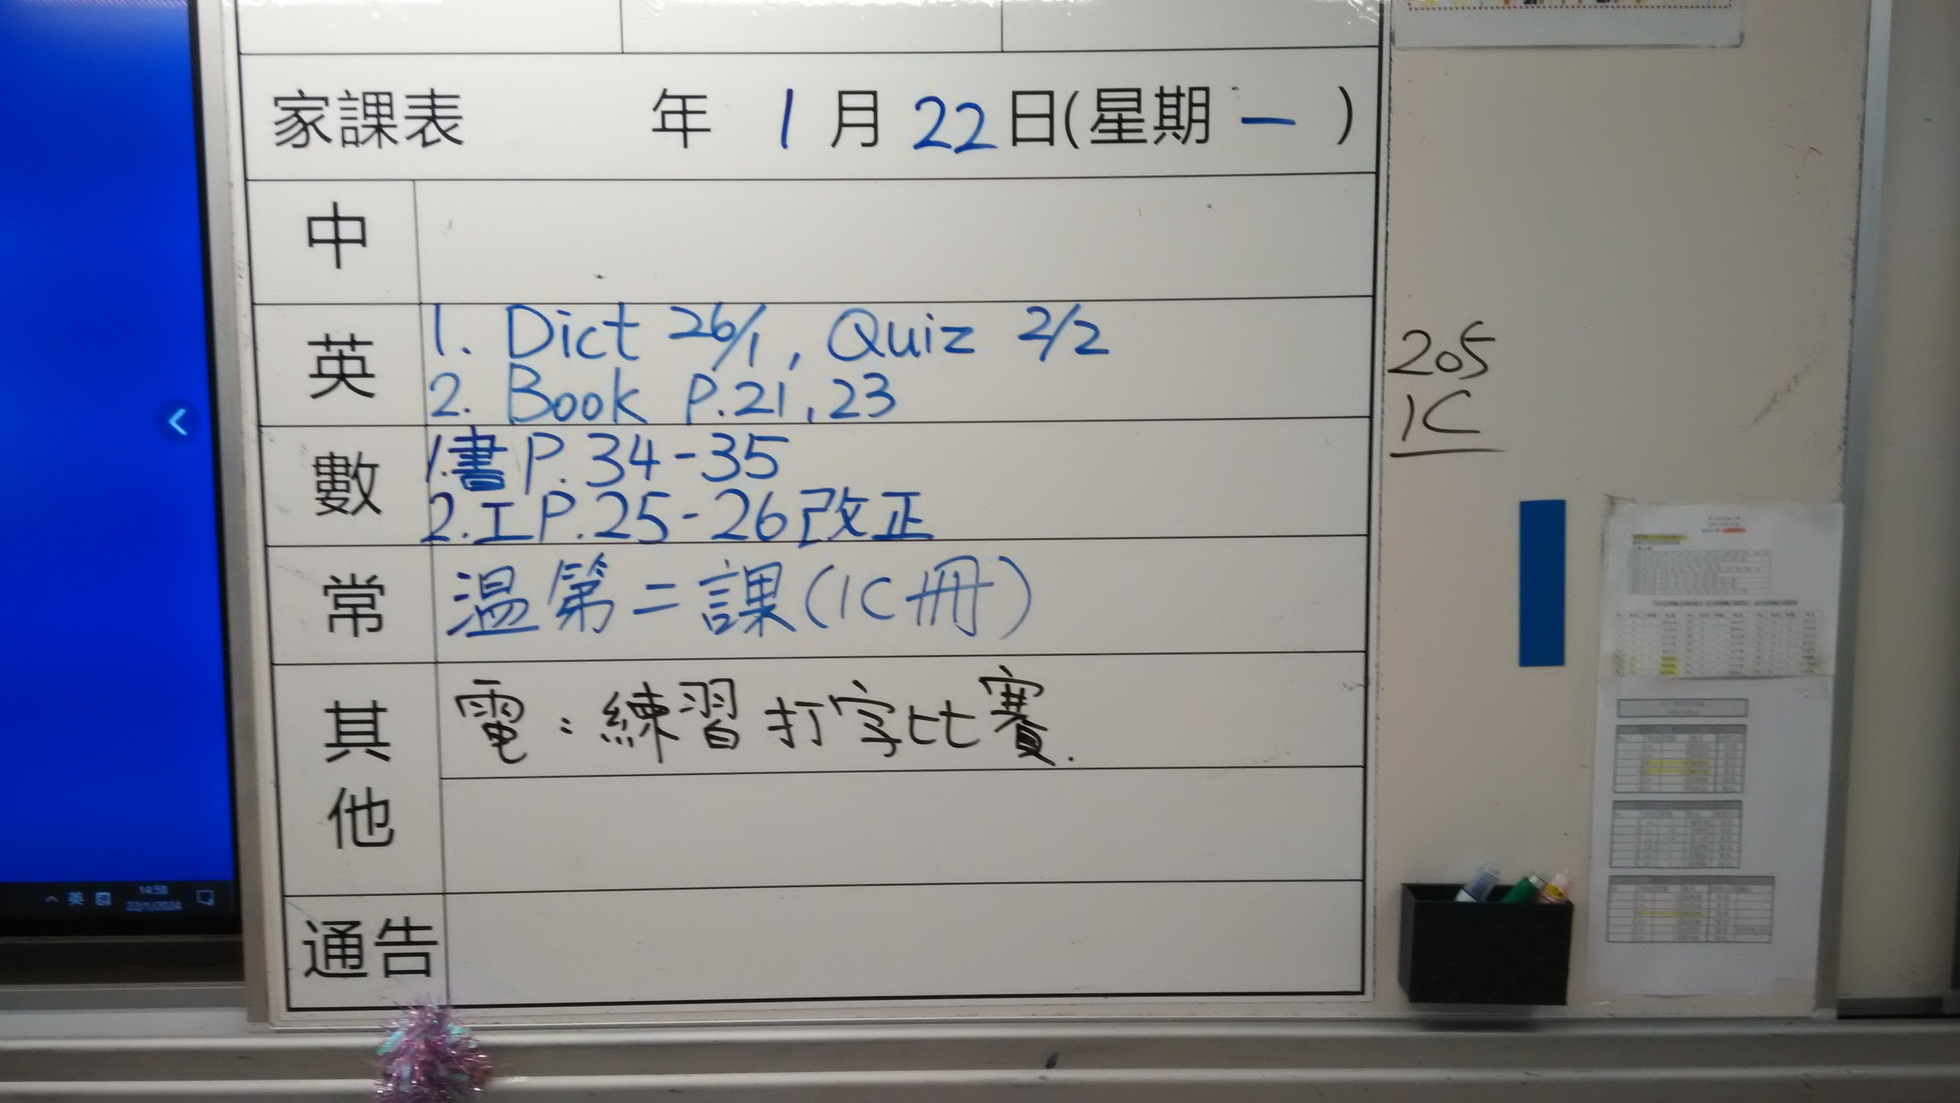 家課表 年 1 月 22 日(星期 一 )
中
英
1. Dict 26/1, Quiz 2/2
2. Book P.21,23
數
1.書P.34-35
2.工P.25-26改正
常
温第二課(1C冊)
其他
電:練習打字比賽.
通告
205
1C
英
14:58
22/1/2024